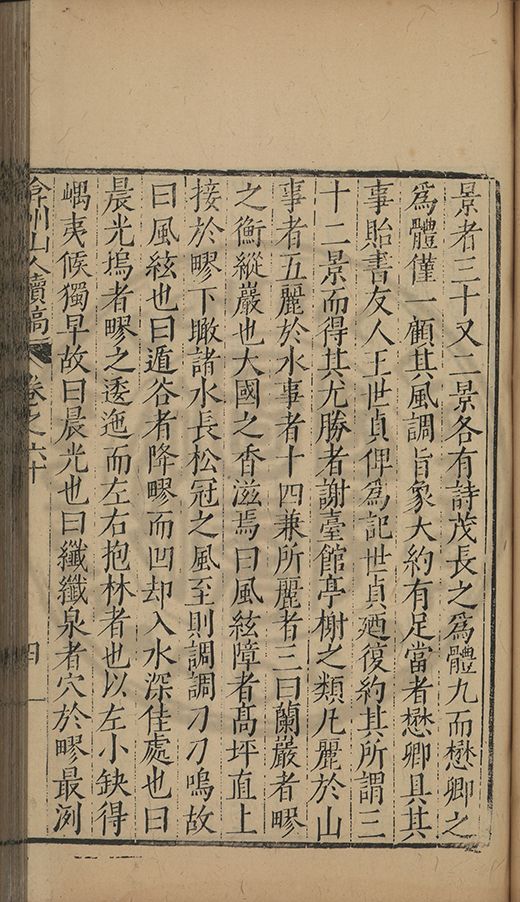 景者三十又二景各有詩茂長之為體九而懋卿之
為體僅一顧其風調旨象大約有足當者懋卿具其
事貽書友人王世貞俾為記世貞廼復約其所謂三
十二景而得其尤勝者謝臺館亭榭之類凡麗於山
事者五麗於水事者十四兼所麗者三曰蘭巖者疁
之衡縱巖也大國之香滋焉曰風絃障者髙坪直上
接於疁下瞰諸水長松冠之風至則調調刀刀鳴故
曰風絃也曰遁谷者降疁而凹却入水深佳處也曰
晨光塢者疁之逶迤而左右抱林者也以左小缺得
嵎夷候獨早故曰晨光也曰纖纖泉者穴於疁最洌
弇州山人續稿 卷之六十 四